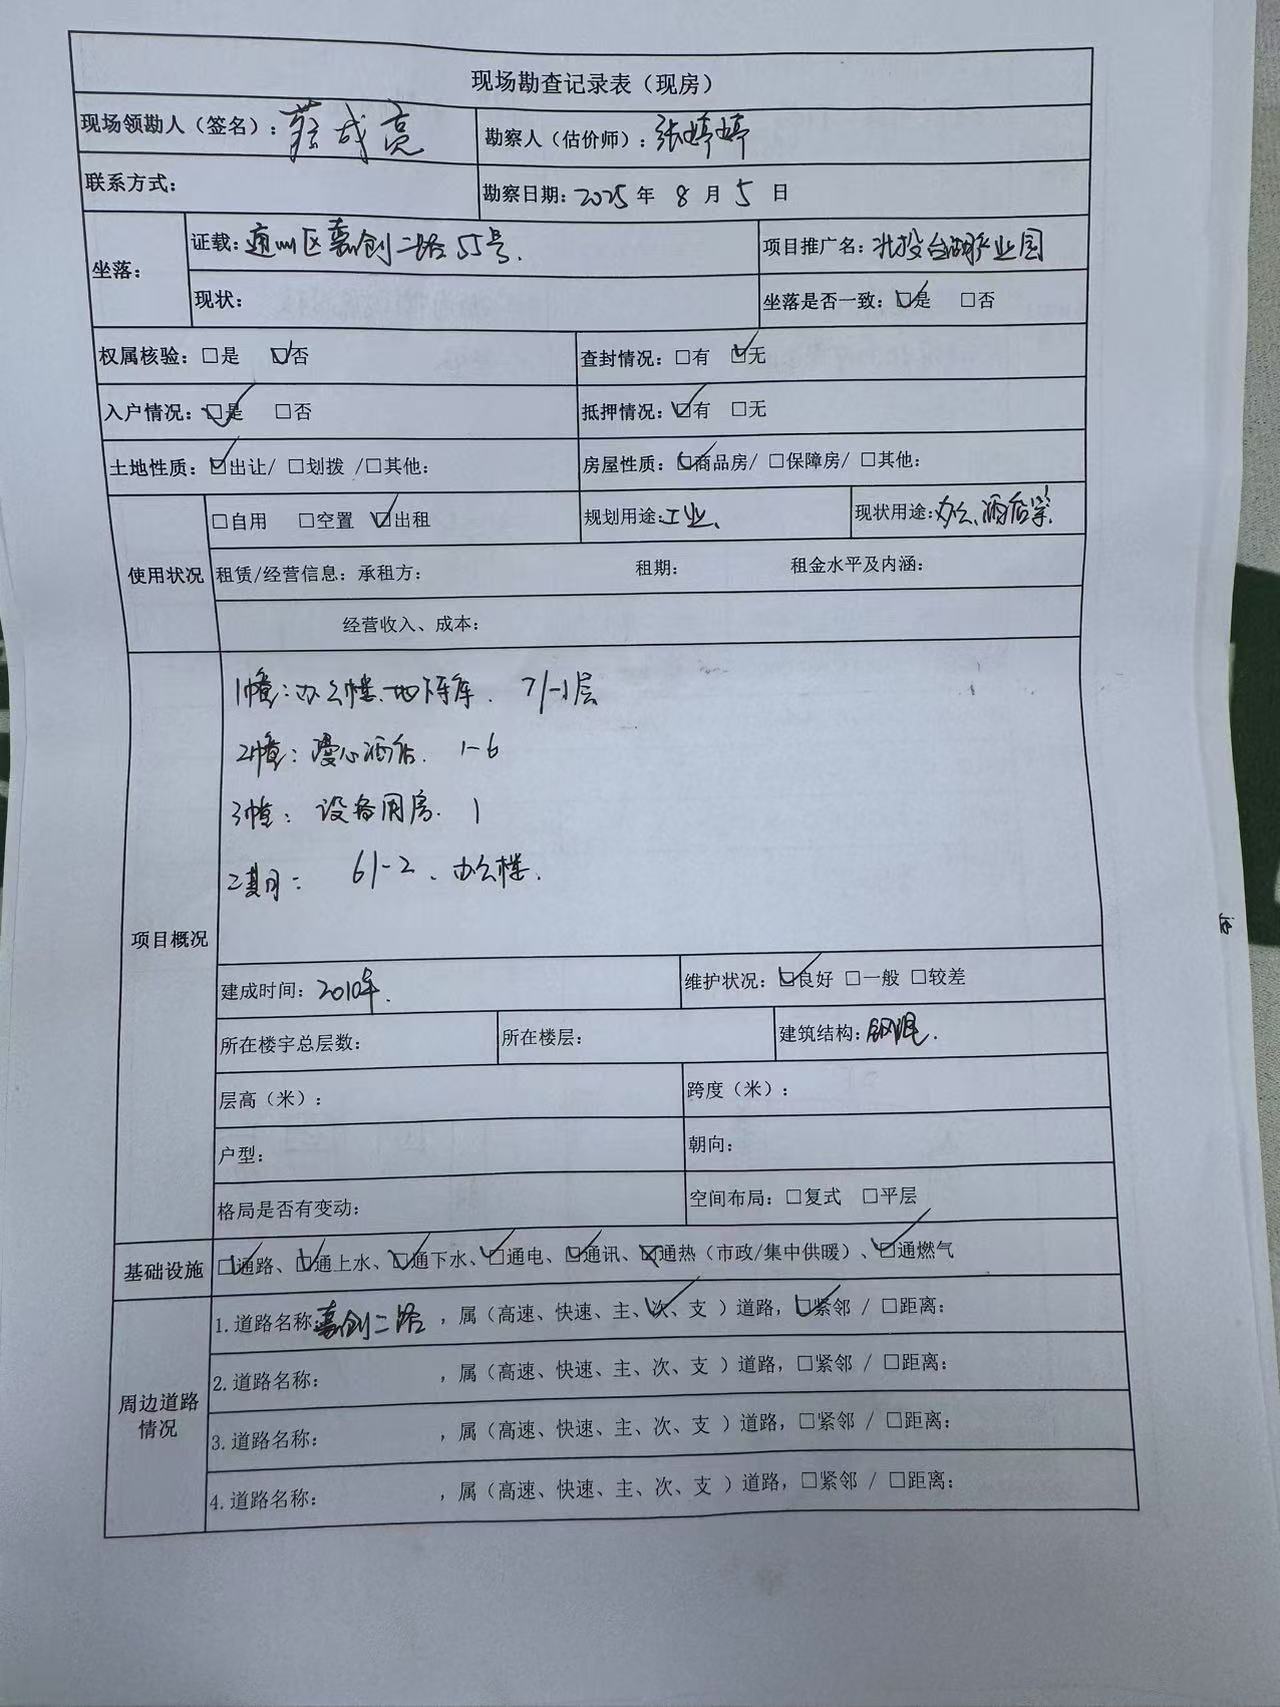 现场勘查记录表（现房）
现场领勘人（签名）：蔡成亮 勘察人（估价师）：张婷婷
联系方式： 勘察日期：2025年 8月 5日
坐落： 证载：通州区嘉创二路55号. 项目推广名：北投台湖产业园
现状： 坐落是否一致：☑是 □否
权属核验：□是 ☑否 查封情况：□有 ☑无
入户情况：☑是 □否 抵押情况：☑有 □无
土地性质：☑出让/ □划拨 /□其他： 房屋性质：☑商品房/ □保障房/ □其他：
使用状况 □自用 □空置 ☑出租 规划用途：工业、 现状用途：办公、酒店等.
租赁/经营信息：承租方： 租期： 租金水平及内涵：
经营收入、成本：
项目概况
1幢：办公楼、地下车库. 7/-1层
2幢：漫心酒店. 1-6
3幢：设备用房. 1
二期： 6/-2、办公楼.
建成时间：2010年. 维护状况：☑良好 □一般 □较差
所在楼宇总层数： 所在楼层： 建筑结构：钢混.
层高（米）： 跨度（米）：
户型： 朝向：
格局是否有变动： 空间布局：□复式 □平层
基础设施 ☑通路、☑通上水、☑通下水、☑通电、☑通讯、☒通热（市政/集中供暖）、☑通燃气
周边道路情况
1.道路名称：嘉创二路 ，属（高速、快速、主、次、支 ）道路，☑紧邻 / □距离：
2.道路名称： ，属（高速、快速、主、次、支 ）道路，□紧邻 / □距离：
3.道路名称： ，属（高速、快速、主、次、支 ）道路，□紧邻 / □距离：
4.道路名称： ，属（高速、快速、主、次、支 ）道路，□紧邻 / □距离：